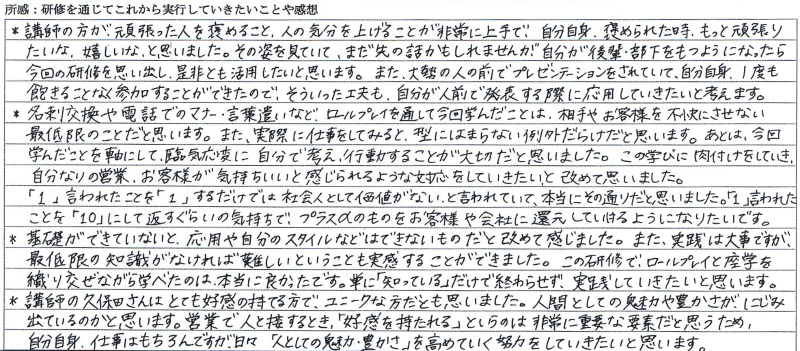 所感：研修を通じてこれから実行していきたいことや感想
* 講師の方が、頑張った人を褒めること、人の気分を上げることが非常に上手で、自分自身、褒められた時、もっと頑張り
たいな、嬉しいな、と思いました。その姿を見ていて、まだ先の話かもしれませんが自分が後輩・部下をもつようになったら
今回の研修を思い出し、是非とも活用したいと思います。また、大勢の人の前でプレゼンテーションをされていて、自分自身、1度も
飽きることなく参加することができたので、そういった工夫も、自分が人前で発表する際に応用していきたいと考えます。
* 名刺交換や電話でのマナー・言葉遣いなど、ロールプレイを通して今回学んだことは、相手やお客様を不快にさせない
最低限のことだと思います。また、実際に仕事をしてみると、型にはまらない例外だらけだと思います。あとは、今回
学んだことを軸にして、臨気応変に自分で考え、行動することが大切だと思いました。この学びに肉付けをしていき、
自分なりの営業、お客様が気持ちいいと感じられるような対応をしていきたいと改めて思いました。
「1」言われたことを「1」するだけでは社会人として価値がない、と言われていて、本当にその通りだと思いました。「1」言われた
ことを「10」にして返すぐらいの気持ちで、プラスαのものをお客様や会社に還元していけるようになりたいです。
* 基礎ができていないと、応用や自分のスタイルなどはできないものだと改めて感じました。また、実践は大事ですが、
最低限の知識がなければ難しいということも実感することができました。この研修で、ロールプレイと座学を
織り交ぜながら学べたのは、本当に良かったです。単に「知っている」だけで終わらせず、実践していきたいと思います。
* 講師の久保田さんはとても好感の持てる方で、ユニークな方だとも思いました。人間としての魅力や豊かさが、にじみ
出ているのかと思います。営業で人と接するとき、「好感を持たれる」というのは非常に重要な要素だと思うため、
自分自身、仕事はもちろんですが日々「人としての魅力・豊かさ」を高めていく努力をしていきたいと思います。